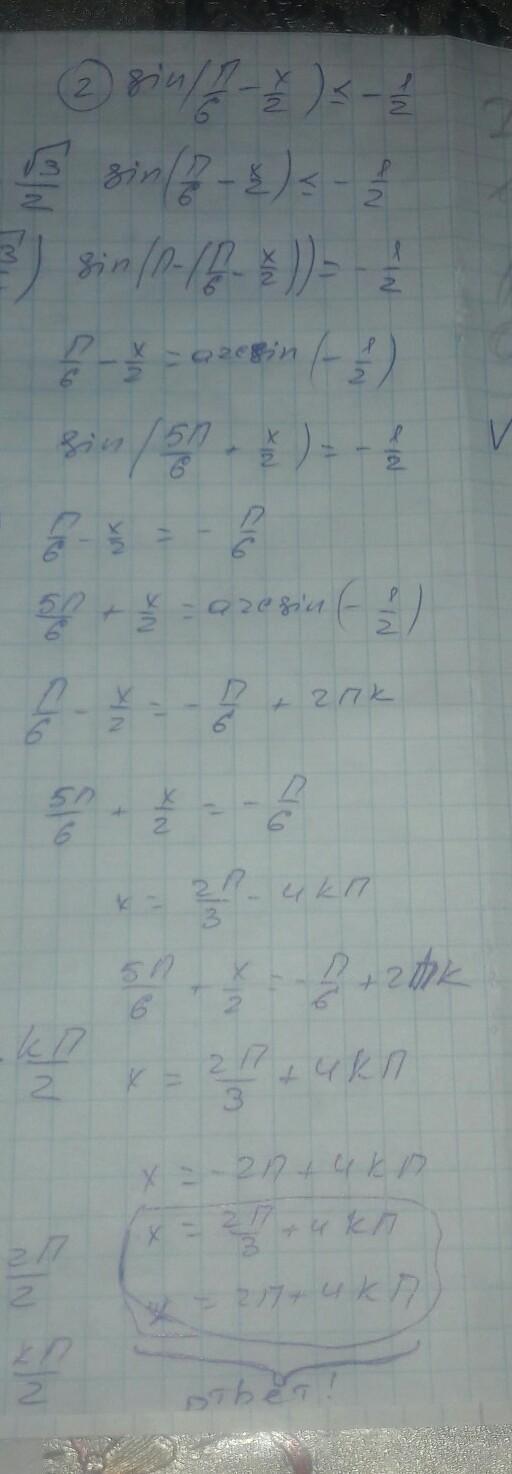 ② sin(П/6 - x/2) ≤ - 1/2
√3/2 sin(П/6 - x/2) ≤ - 1/2
sin(П-(П/6 - x/2)) = - 1/2
П/6 - x/2 = arcsin(- 1/2)
sin(5П/6 + x/2) = - 1/2
П/6 - x/2 = - П/6
5П/6 + x/2 = arcsin(- 1/2)
П/6 - x/2 = - П/6 + 2ПК
5П/6 + x/2 = - П/6
x = 2П/3 - 4КП
5П/6 + x/2 = - П/6 + 2ПК
КП/2 x = 2П/3 + 4КП
x = -2П + 4КП
x = 2П/3 + 4КП
2П/2 x = 2П + 4КП
КП/2
ответ!